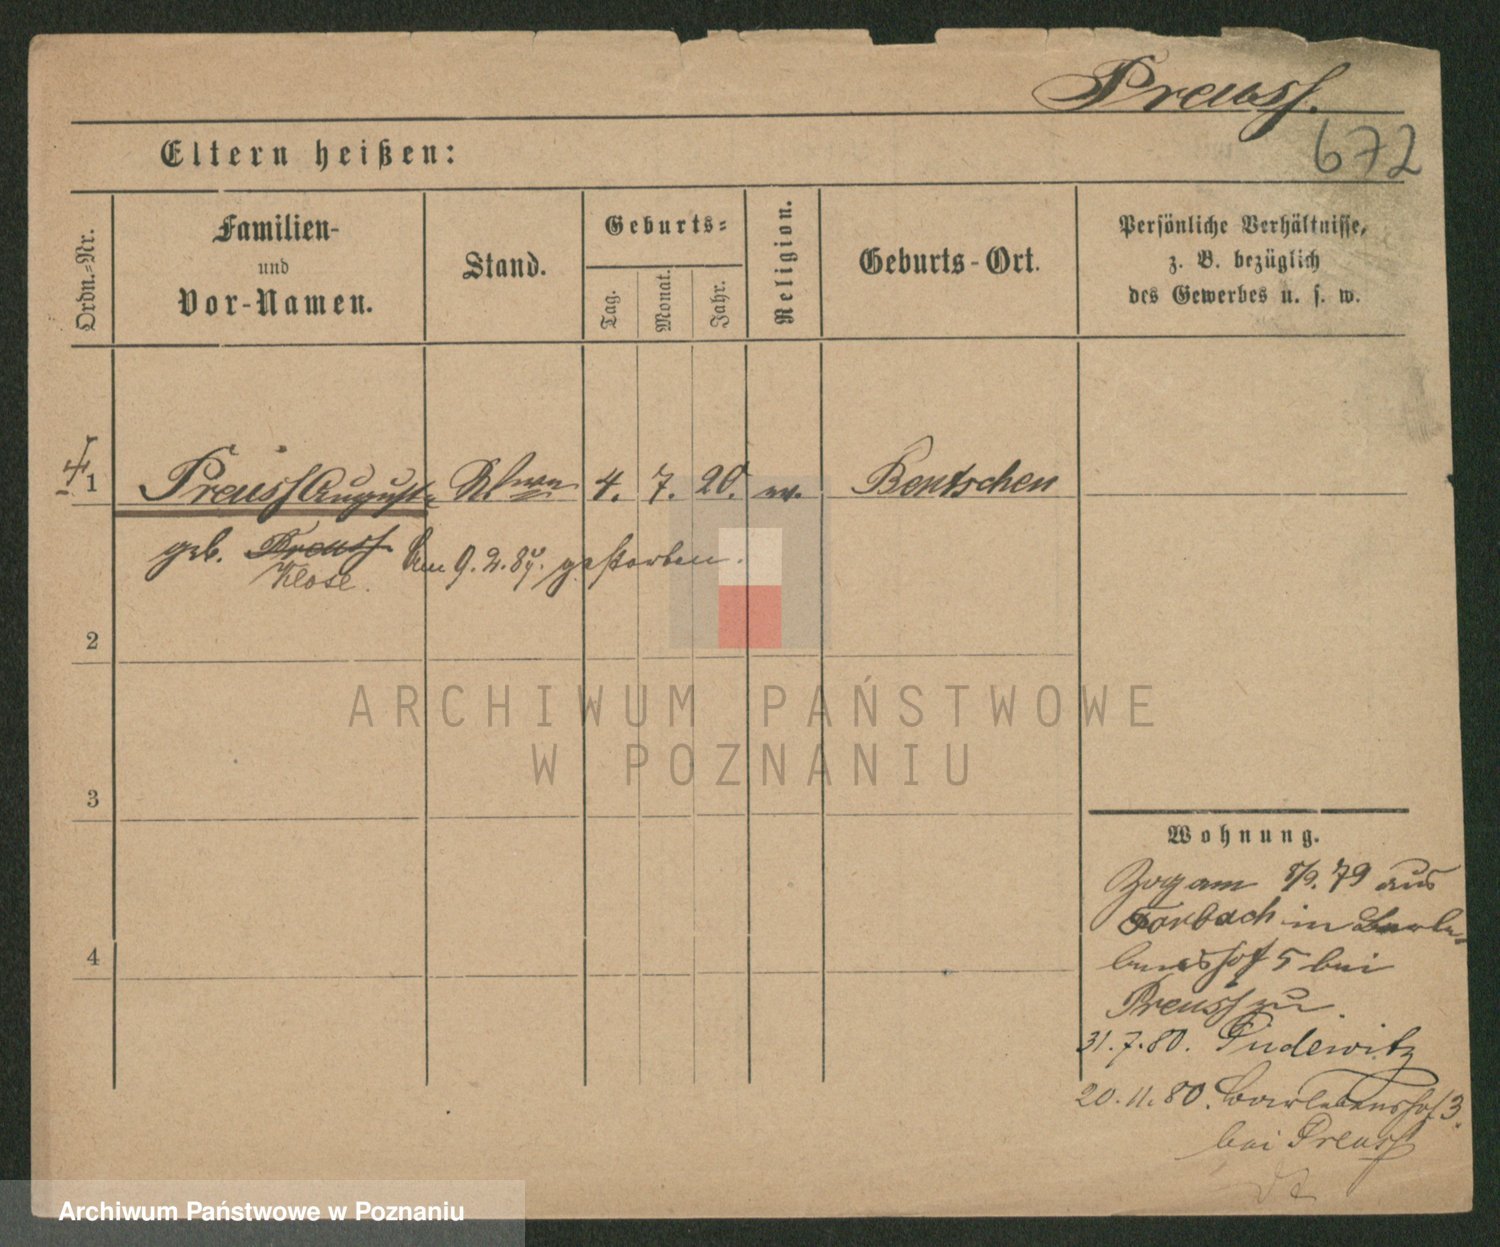 Preuss.
672
Eltern heißen:
Ordn.-Nr.
Familien-
und
Vor-Namen.
Stand.
Geburts-
Tag.
Monat.
Jahr.
Religion.
Geburts-Ort.
Persönliche Verhältnisse,
z. B. bezüglich
des Gewerbes u. s. w.
1 Preuss Auguste 4. 7. 20. Bentschen
geb. Preuss Am 9. 2. 84. gestorben.
Klose.
2
ARCHIWUM PAŃSTWOWE
W POZNANIU
3
4
Wohnung.
Zog am 8/9. 79 aus
Forbach in Barle-
benshof 5 bei
Preuss zu.
31.7.80. Pudewitz
20.11.80. Barlebenshof 3.
bei Preuss
Archiwum Państwowe w Poznaniu